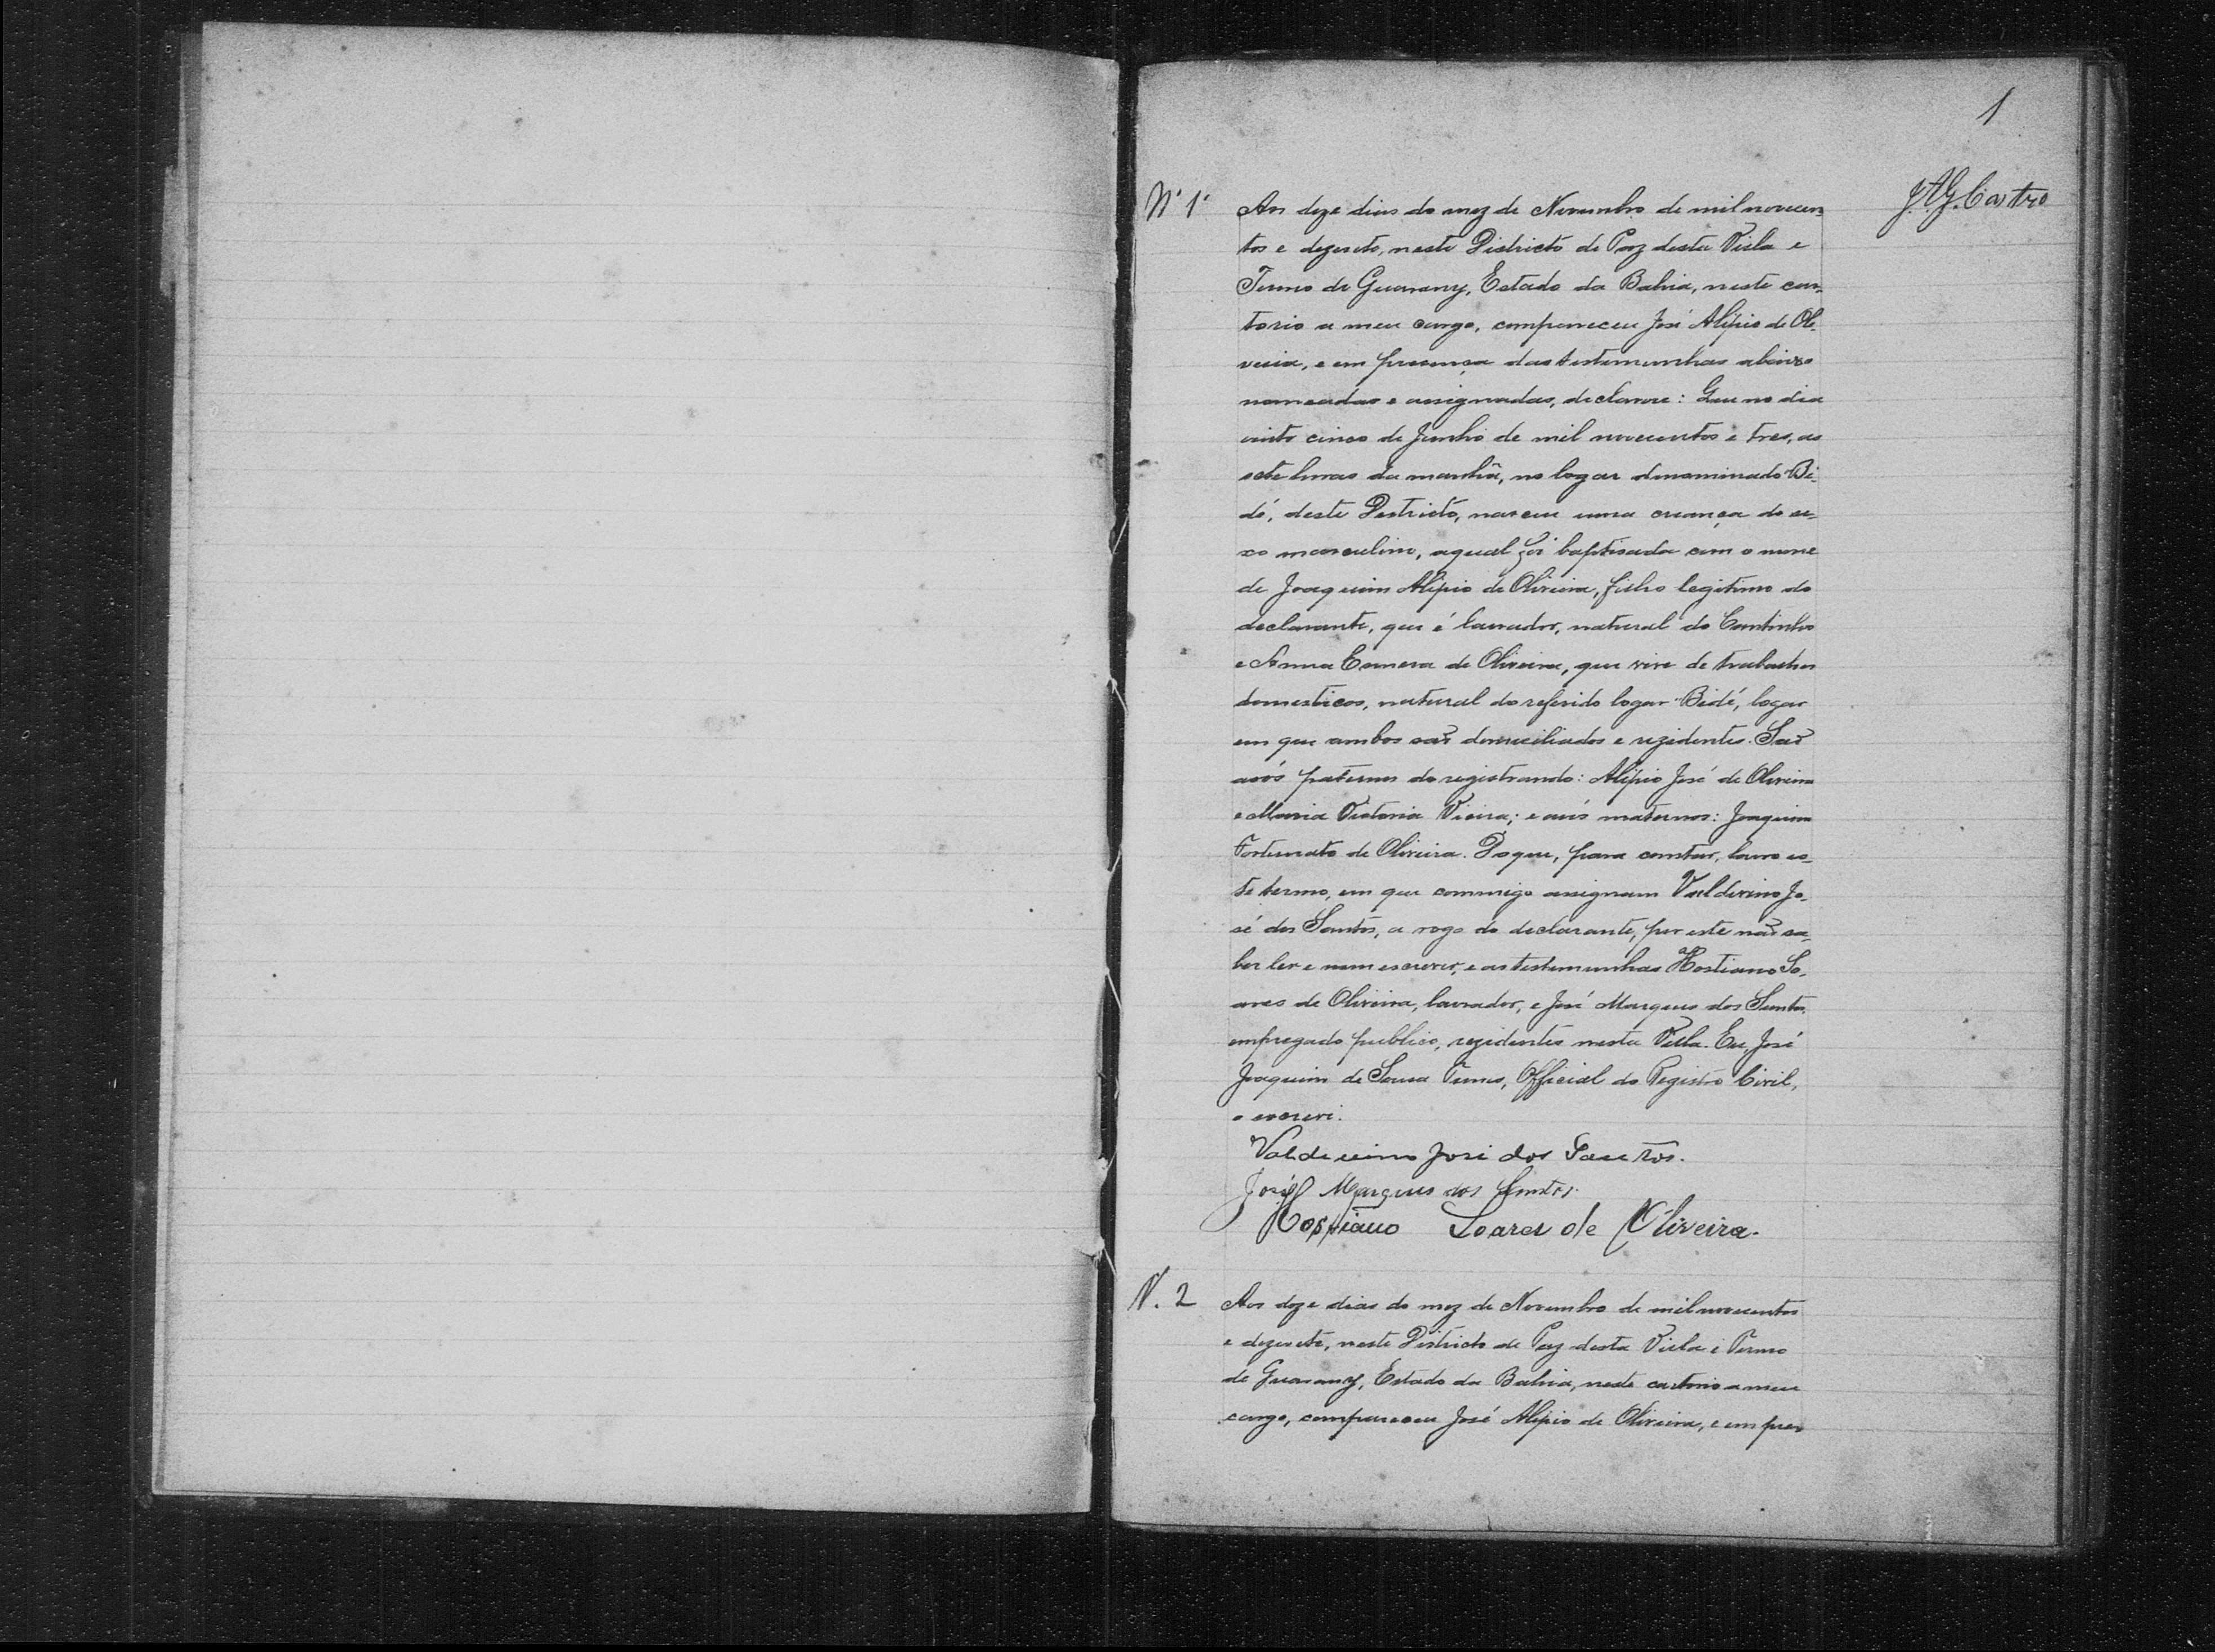 1
J.A.G. Castro
Nº 1º
Aos doze dias do mez de Novembro de mil novecen
tos e dezesete, neste Districto de Paz desta Villa e
Termo de Guarany, Estado da Bahia, neste car-
torio a meu cargo, compareceu José Alipio de Oli-
veira, e em presença das testemunhas abaixo
nomeadas e assignadas, declarou: Que no dia
vinte cinco de Junho de mil novecentos e tres, as
sete horas da manhã, no logar denominado "Bi-
dé", deste Destricto, nasceu uma creança do se-
xo masculino, a qual foi baptisada com o nome
de Joaquim Alipio de Oliveira, filho legitimo do
declarante, que é lavrador, natural do Cantinho
e Anna de Oliveira, que vive de trabalhos
domesticos, natural do referido logar "Bidé", logar
em que ambos são domiciliados e rezidentes. São
avós paternos do registrando: Alipio José de Oliveira
e Maria Victoria Vieira; e avós maternos: Joaquim
Fortunato de Oliveira. Do que, para constar, lavro es-
te termo, em que commigo assignam Valdivino Jo-
sé dos Santos, a rogo do declarante, por este não sa-
ber ler e nem escrever, e as testemunhas Hostiano So-
ares de Oliveira, lavrador, e José Marques dos Santos,
empregado publico, rezidentes nesta Villa. Eu, José
Joaquim de Sousa Tunes, Official do Registro Civil,
o escrevi.
Valdivino José dos Santos.
José Marques dos Santos.
Hostiano Soares de Oliveira.
N. 2
Aos doze dias do mez de Novembro de mil novecentos
e dezesete, neste Districto de Paz desta Villa e Termo
de Guarany, Estado da Bahia, neste cartorio a meu
cargo, compareceu José Alipio de Oliveira, e em pres